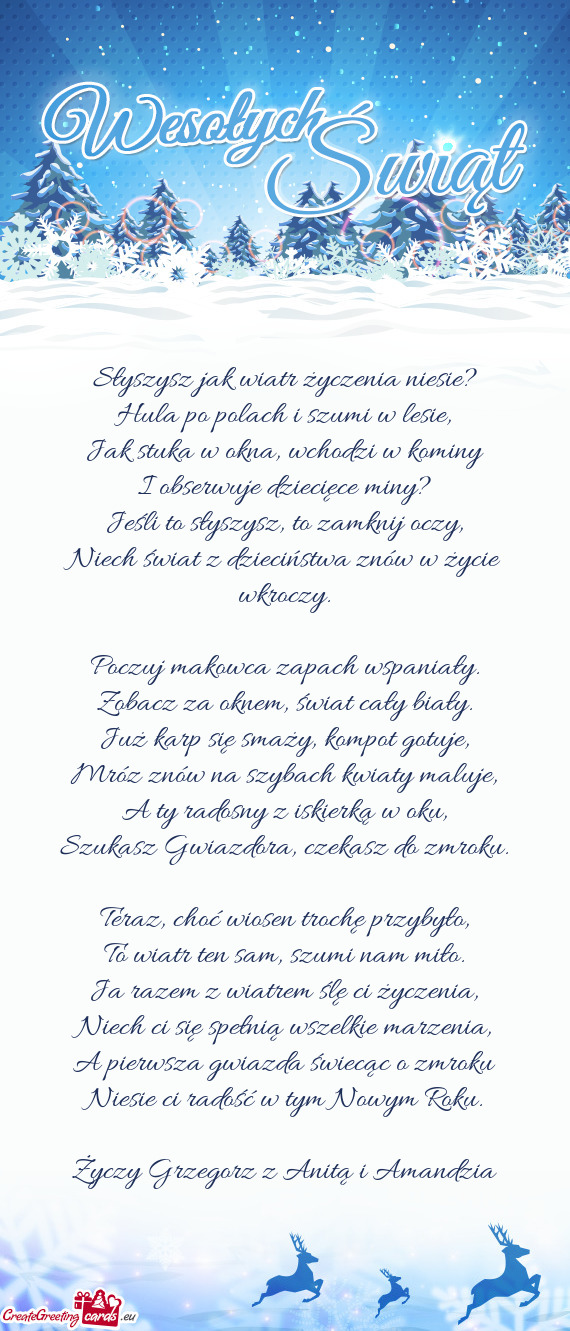 Wesołych
Świąt
Słyszysz jak wiatr życzenia niesie?
Hula po polach i szumi w lesie,
Jak stuka w okna, wchodzi w kominy
I obserwuje dziecięce miny?
Jeśli to słyszysz, to zamknij oczy,
Niech świat z dzieciństwa znów w życie
wkroczy.
Poczuj makowca zapach wspaniały.
Zobacz za oknem, świat cały biały.
Już karp się smaży, kompot gotuje,
Mróz znów na szybach kwiaty maluje,
A ty radosny z iskierką w oku,
Szukasz Gwiazdora, czekasz do zmroku.
Teraz, choć wiosen trochę przybyło,
To wiatr ten sam, szumi nam miło.
Ja razem z wiatrem ślę ci życzenia,
Niech ci się spełnią wszelkie marzenia,
A pierwsza gwiazda świecąc o zmroku
Niesie ci radość w tym Nowym Roku.
Życzy Grzegorz z Anitą i Amandzia
CreateGreeting cards .eu